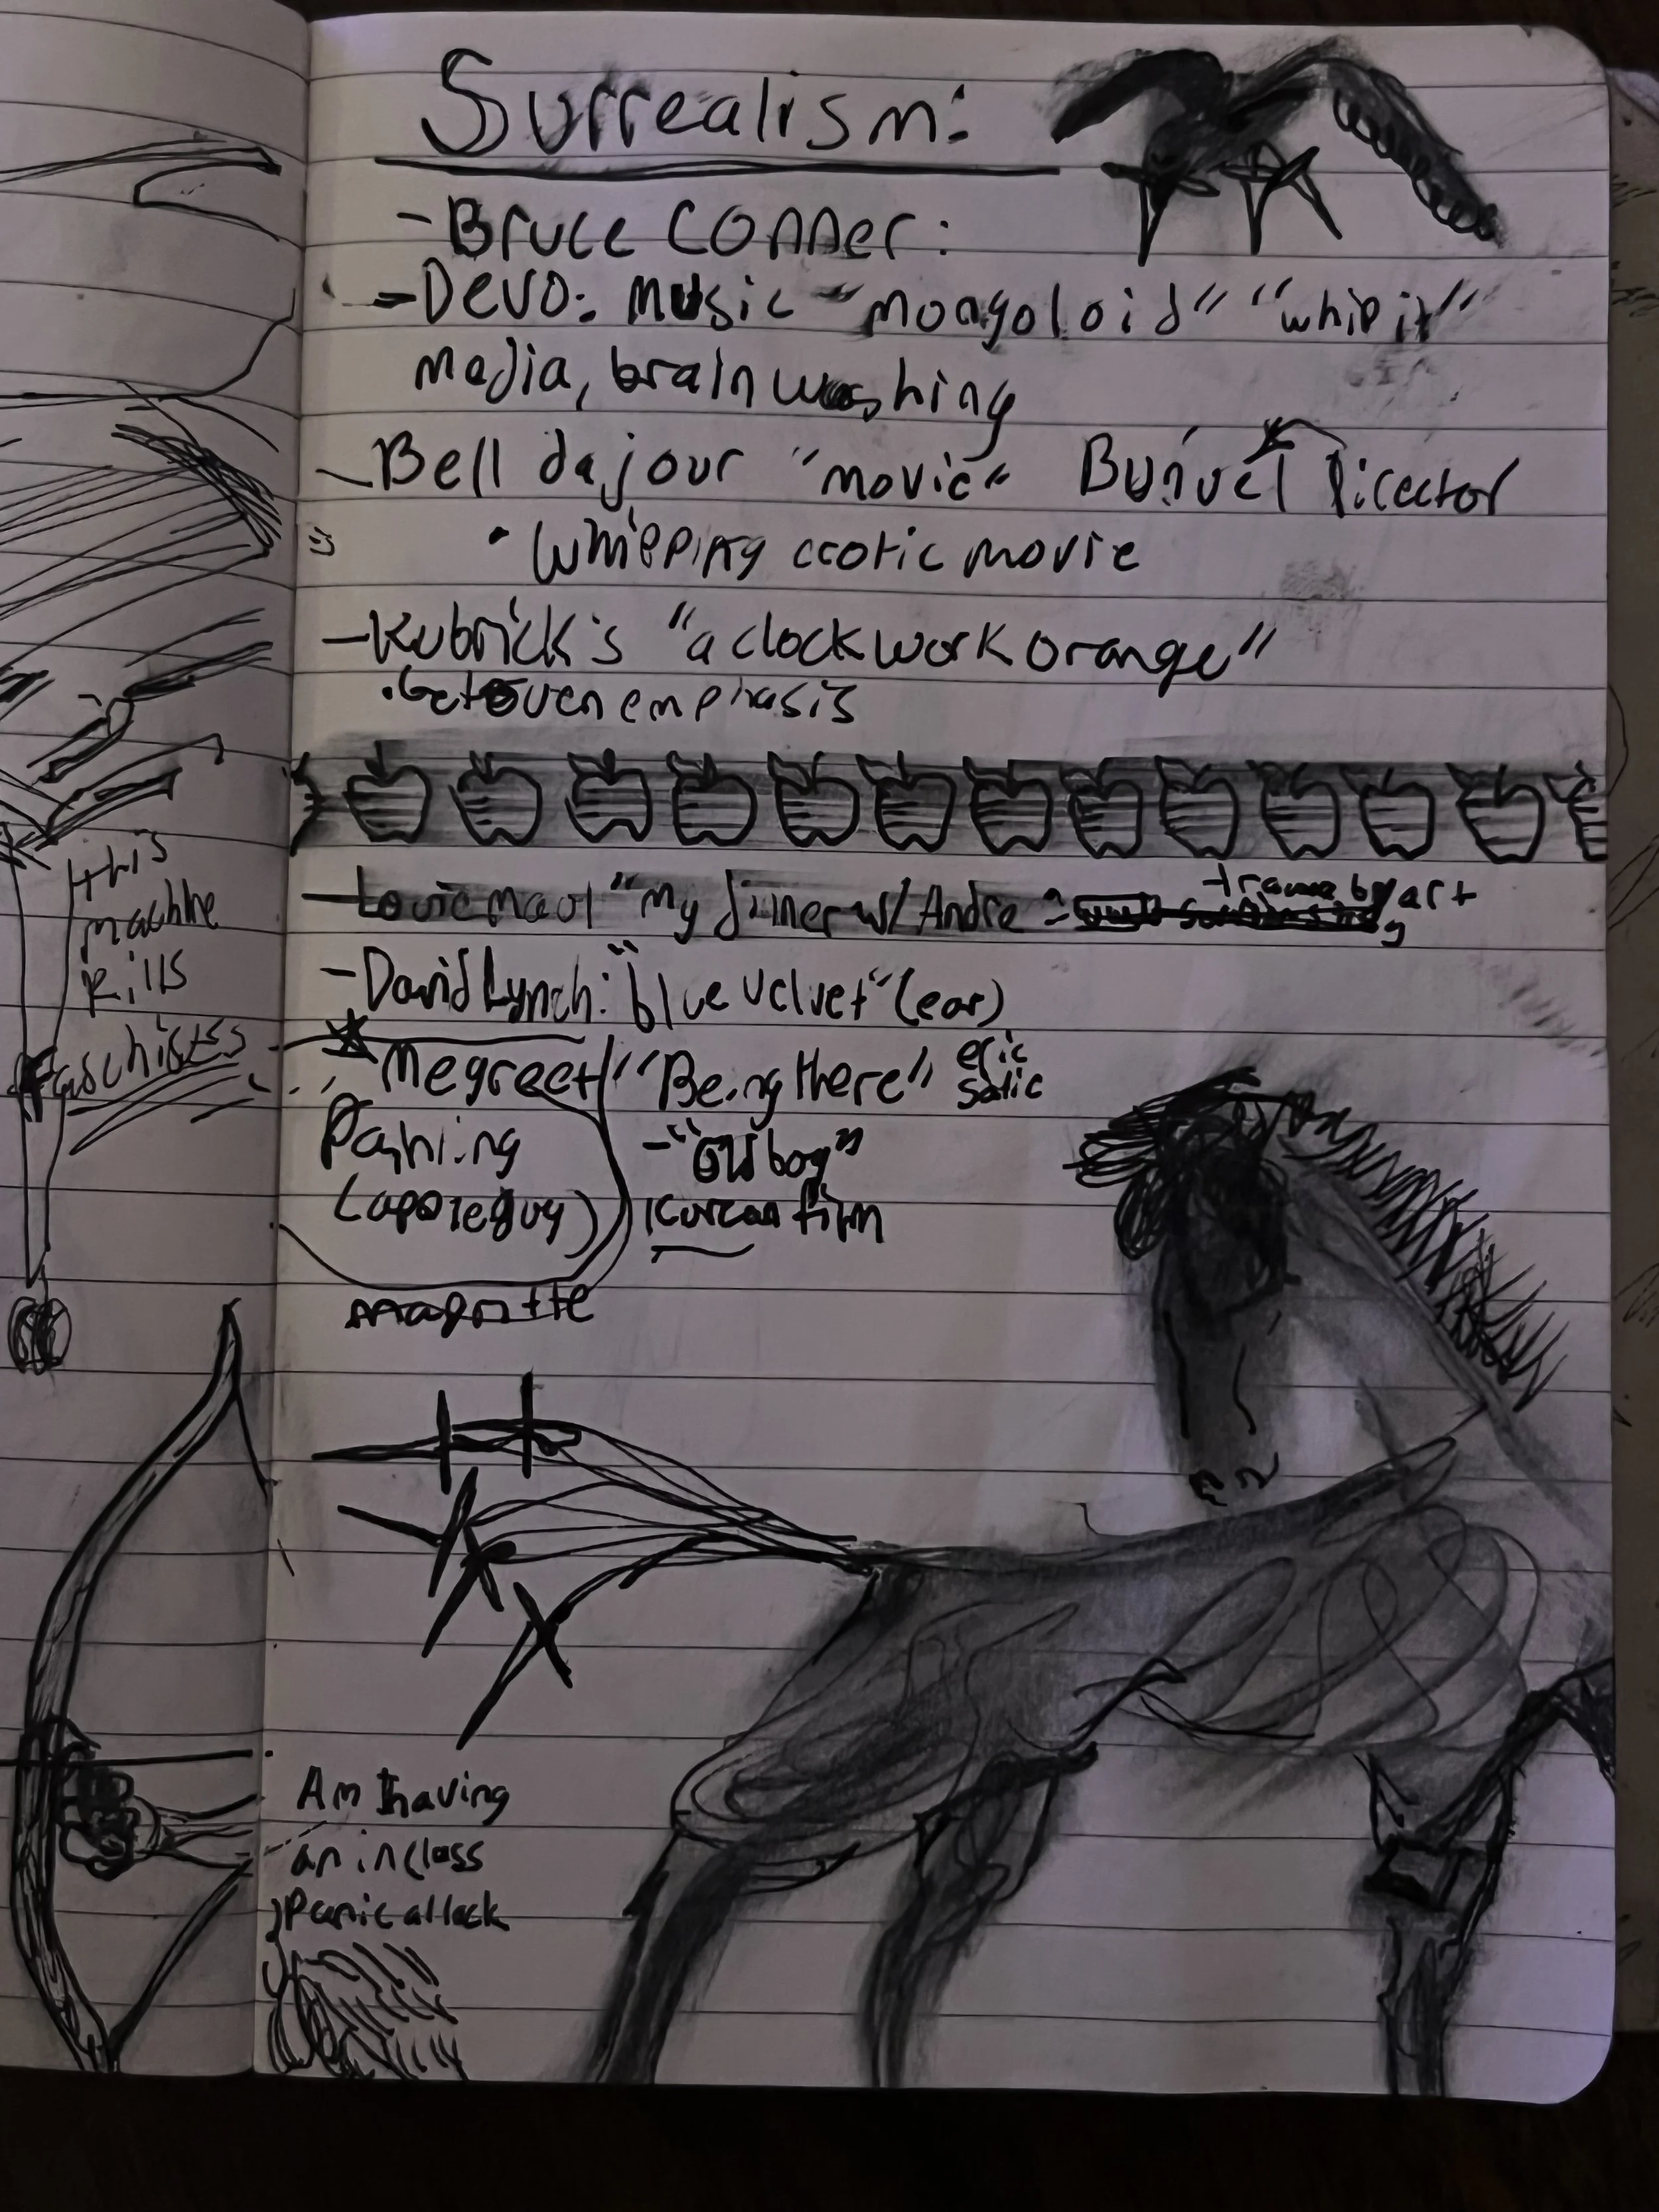 Surrealism:
- Bruce Conner:
- Devo: music - "mongoloid" "whip it"
media, brainwashing
- Bell dajour "movie" Buñuel Director
• whipping erotic movie
- Kubrick's "a clockwork orange"
• Betoven emphasis
- Louie maul "my dinner w/ Andre = trauma by art
- David Lynch: "blue velvet" (ear)
Megreet "Being there" eric satie
Painting - "Old boy"
(apple guy) Korean film
magritte
Am I having
an in class
panic attack
this
machine
kills
faschists